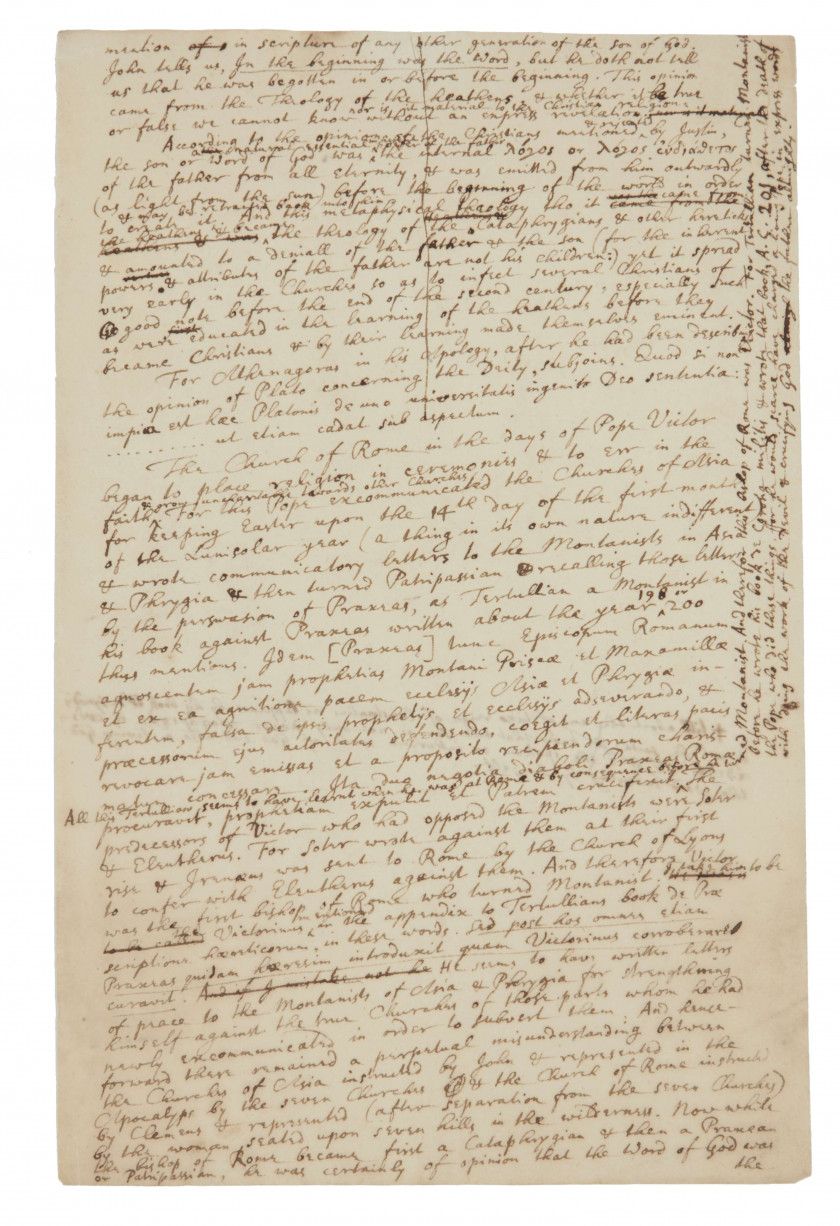 mention of in scripture of any other generation of the son of God.
John tells us, In the beginning was the Word, but he doth not tell
us that he was begotten in or before the beginning. This opinion
came from the Theology of the heathens, & whether it be true
or false we cannot know without an express revelation
nor is it material to the Christian religion.
According to the opinion of the Christians mentioned by Justin,
the son or Word of God was the internal λόγος or λόγος ἐνδιάθετος
of the father from all eternity, & was emitted from him outwardly
(as light from the sun) before the beginning of the world in order
& may be retracted back into him
to create it. And this metaphysical theology tho it came from the
heathens & was the theology of the Cataphrygians & other hereticks
& amounted to a deniall of the father & the son (for the inherent
powers & attributes of the father are not his children:) yet it spread
very early in the Churches so as to infect several Christians of
good note before the end of the second century, especially such
as were educated in the learning of the heathens before they
became Christians & by their learning made themselves eminent.
For Athenagoras in his Apology, after he had been describing
the opinion of Plato concerning the Deity, subjoins. Quod si non
impia est hæc Platonis de uno universitatis ingenito Deo sententia:
. . . . . . . . . . ut etiam cadat sub aspectum.
The Church of Rome in the days of Pope Victor
began to place religion in ceremonies & to err in the
faith. For this Pope excommunicated the Churches of Asia
for keeping Easter upon the 14th day of the first month
of the Lunisolar year (a thing in its own nature indifferent
& wrote communicatory letters to the Montanists in Asia
& Phrygia & then turned Patripassian recalling those letters
by the perswasion of Praxeas, as Tertullian a Montanist in
his book against Praxeas written about the year 198 or 200
thus mentions. Idem [Praxeas] tunc Episcopum Romanum
agnoscentem jam prophetias Montani Priscæ et Maxamillæ
et ex ea agnitione pacem ecclesijs Asiæ et Phrygiæ in-
ferentem, falsa de ipsis prophetijs et ecclesijs adseverando, &
præcessorum ejus autoritates defendendo, coegit et literas pacis
revocare jam emissas et a proposito recipiendorum charis-
matum concessare. Ita duo negotia diaboli Praxeas Romæ
procuravit, prophetiam expulit et Patrem crucifixit. The
All this Tertullian seems to have learnt when he was at Rome & by consequence before
predecessors of Victor who had opposed the Montanists were Soter
& Eleutherus. For Soter wrote against them at their first
rise & Irenæus was sent to Rome by the Church of Lyons
to confer with Eleutherus against them. And therefore Victor
was the first bishop of Rome who turned Montanist. to be
to be called the Victorinus mentioned in the appendix to Tertullians book de Præ
scriptione hæreticorum, in these words. Sed post hos omnes etiam
Praxeas quidam hæresim introduxit quam Victorinus corroborare
curavit. And if I mistake not he He seems to have written letters
of peace to the Montanists of Asia & Phrygia for strengthning
himself against the true Churches of those parts whom he had
newly excommunicated in order to subvert them: And hence-
forward there remained a perpetual misunderstanding between
the Churches of Asia instructed by John & represented in the
Apocalyps by the seven Churches & the Church of Rome instructed
by Clemens & represented (after separation from the seven Churches)
by the woman seated upon seven hills in the wilderness. Now while
the bishop of Rome became first a Cataphrygian & then a Praxean
or Patripassian, he was certainly of opinion that the Word of God was
the
Montanist. And therefore this bishop of Rome was Victor. For Tertullian turned Montanist
before he wrote his book de Corona militis & wrote that book A.C. 201 after the death of
the Pope who did these things. for he would scarce have charged a living Pope in express words
with doing the work of the Devil & crucifying God the father almighty.